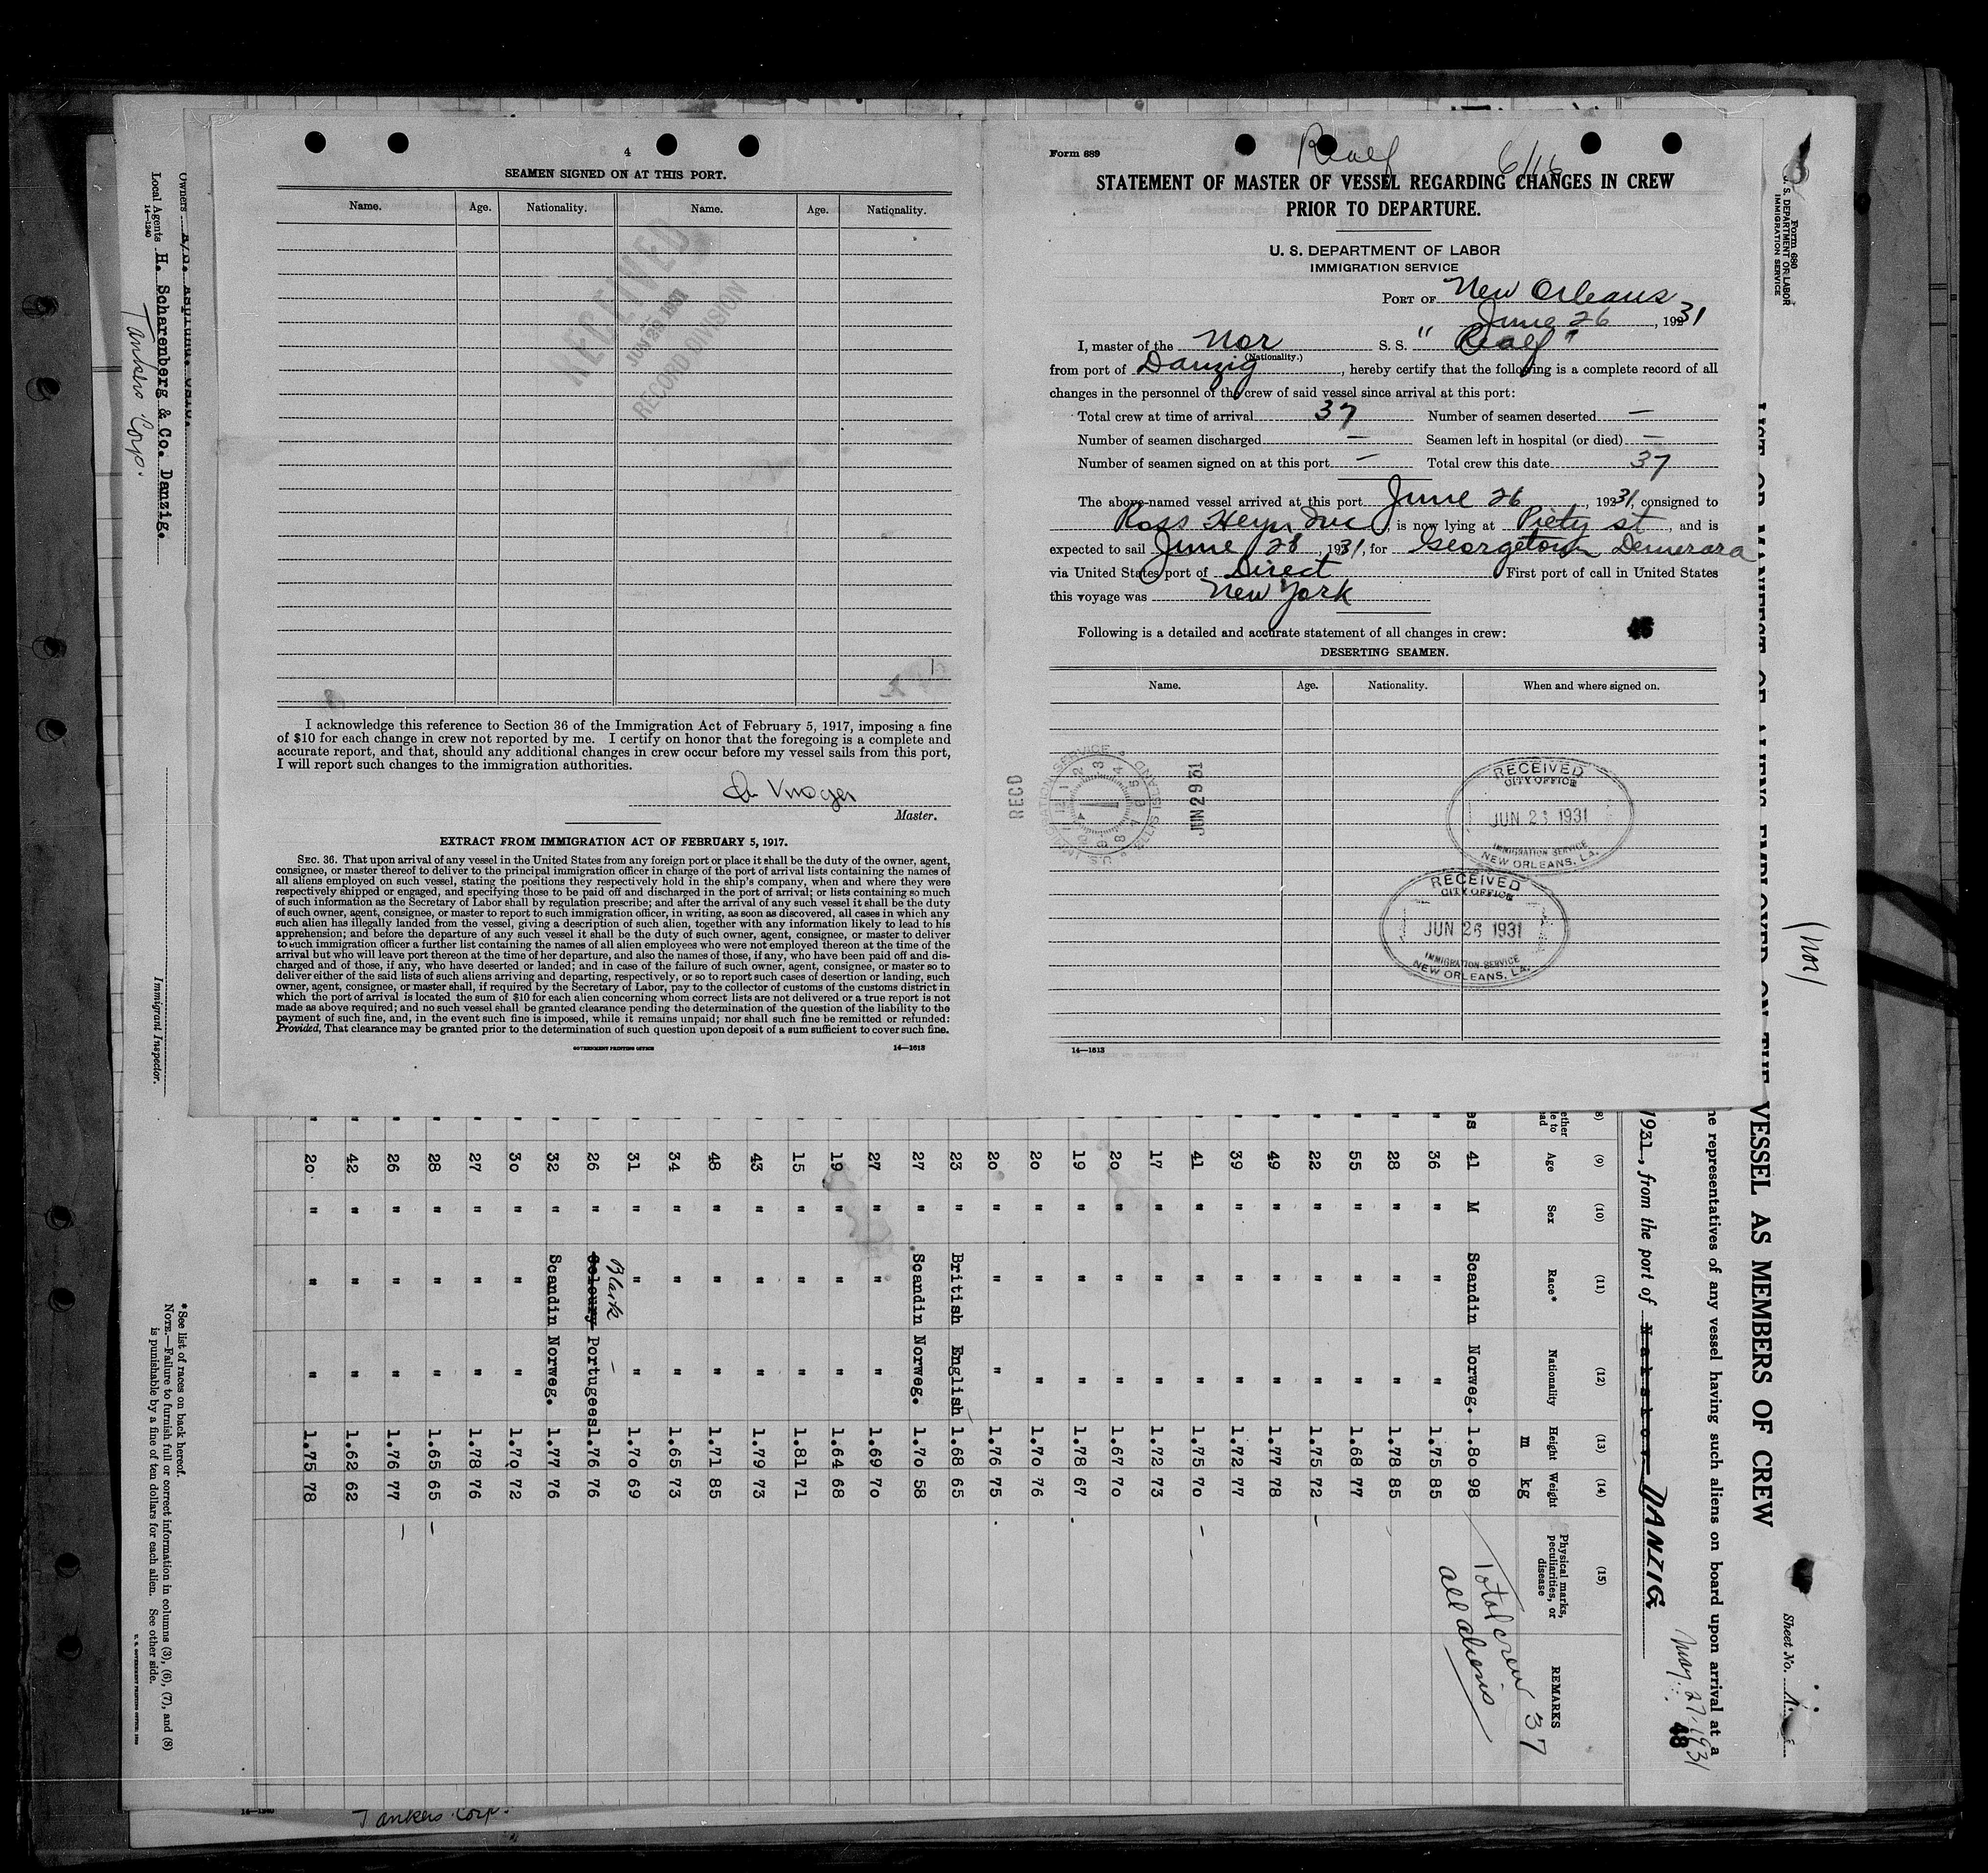 4
SEAMEN SIGNED ON AT THIS PORT.
Name. Age. Nationality. Name. Age. Nationality.
RECEIVED
JUN 29 1931
RECORD DIVISION
I acknowledge this reference to Section 36 of the Immigration Act of February 5, 1917, imposing a fine
of $10 for each change in crew not reported by me. I certify on honor that the foregoing is a complete and
accurate report, and that, should any additional changes in crew occur before my vessel sails from this port,
I will report such changes to the immigration authorities.
Master.
EXTRACT FROM IMMIGRATION ACT OF FEBRUARY 5, 1917.
SEC. 36. That upon arrival of any vessel in the United States from any foreign port or place it shall be the duty of the owner, agent,
consignee, or master thereof to deliver to the principal immigration officer in charge of the port of arrival lists containing the names of
all aliens employed on such vessel, stating the positions they respectively hold in the ship's company, when and where they were
respectively shipped or engaged, and specifying those to be paid off and discharged in the port of arrival; or lists containing so much
of such information as the Secretary of Labor shall by regulation prescribe; and after the arrival of any such vessel it shall be the duty
of such owner, agent, consignee, or master to report to such immigration officer, in writing, as soon as discovered, all cases in which any
such alien has illegally landed from the vessel, giving a description of such alien, together with any information likely to lead to his
apprehension; and before the departure of any such vessel it shall be the duty of such owner, agent, consignee, or master to deliver
to such immigration officer a further list containing the names of all alien employees who were not employed thereon at the time of the
arrival but who will leave port thereon at the time of her departure, and also the names of those, if any, who have been paid off and dis-
charged and of those, if any, who have deserted or landed; and in case of the failure of such owner, agent, consignee, or master so to
deliver either of the said lists of such aliens arriving and departing, respectively, or so to report such cases of desertion or landing, such
owner, agent, consignee, or master shall, if required by the Secretary of Labor, pay to the collector of customs of the customs district in
which the port of arrival is located the sum of $10 for each alien concerning whom correct lists are not delivered or a true report is not
made as above required; and no such vessel shall be granted clearance pending the determination of the question of the liability to the
payment of such fine, and, in the event such fine is imposed, while it remains unpaid; nor shall such fine be remitted or refunded:
Provided, That clearance may be granted prior to the determination of such question upon deposit of a sum sufficient to cover such fine.
GOVERNMENT PRINTING OFFICE 14—1613
Form 689
Realf 6/16
STATEMENT OF MASTER OF VESSEL REGARDING CHANGES IN CREW
PRIOR TO DEPARTURE.
U. S. DEPARTMENT OF LABOR
IMMIGRATION SERVICE
PORT OF New Orleans
June 26, 19231
I, master of the Nor S. S. "Realf"
(Nationality.)
from port of Danzig, hereby certify that the following is a complete record of all
changes in the personnel of the crew of said vessel since arrival at this port:
Total crew at time of arrival 37 Number of seamen deserted —
Number of seamen discharged — Seamen left in hospital (or died) —
Number of seamen signed on at this port — Total crew this date 37
The above-named vessel arrived at this port June 26, 19231, consigned to
Ross Heyn Inc, is now lying at Piety st, and is
expected to sail June 28, 19231, for Georgetown Demerara
via United States port of Direct First port of call in United States
this voyage was New York
Following is a detailed and accurate statement of all changes in crew:
DESERTING SEAMEN.
Name. Age. Nationality. When and where signed on.
REC'D
U.S. IMMIGRATION SERVICE ELLIS ISLAND
JUN 29 31
RECEIVED
CITY OFFICE
JUN 26 1931
IMMIGRATION SERVICE
NEW ORLEANS, LA.
RECEIVED
CITY OFFICE
JUN 26 1931
IMMIGRATION SERVICE
NEW ORLEANS, LA.
14—1613
Form 680
U. S. DEPARTMENT OF LABOR
IMMIGRATION SERVICE
Sheet No. 1
LIST OR MANIFEST OF ALIENS EMPLOYED ON THE VESSEL AS MEMBERS OF CREW
(nor)
he representatives of any vessel having such aliens on board upon arrival at a
May 27-1931
48
1931, from the port of Nakskov DANZIG
(8) (9) (10) (11) (12) (13) (14) (15)
Age Sex Race* Nationality Height Weight Physical marks, peculiarities, or disease REMARKS
m kg
Total crew 37
all aliens
es 41 M Scandin Norweg. 1.80 98
" 36 " " " 1.75 85
" 28 " " " 1.78 85
" 55 " " " 1.68 77
" 22 " " " 1.75 72 –
" 49 " " " 1.77 78
" 39 " " " 1.72 77
" 41 " " " 1.75 70 –
" 17 " " " 1.72 73
" 20 " " " 1.67 70
" 19 " " " 1.78 67
" 20 " " " 1.70 76
" 20 " " " 1.76 75
" 23 " British English 1.68 65
" 27 " Scandin Norweg. 1.70 58
" 27 " " " 1.69 70
" 19 " " " 1.64 68
" 15 " " " 1.81 71
" 43 " " " 1.79 73
" 48 " " " 1.71 85
" 34 " " " 1.65 73
" 31 " " " 1.70 69
Black –
" 26 " Portugees 1.76 76
" 32 " Scandin Norweg. 1.77 76
" 30 " " " 1.70 72
" 27 " " " 1.78 76
" 28 " " " 1.65 65 –
" 26 " " " 1.76 77 –
" 42 " " " 1.62 62
" 20 " " " 1.75 78
Owners
Local Agents H. Scharenberg & Co. Danzig.
14—1240
Tankers Corp.
Immigrant Inspector.
*See list of races on back hereof.
NOTE.—Failure to furnish full or correct information in columns (3), (6), (7), and (8)
is punishable by a fine of ten dollars for each alien. See other side.
Tankers Corp.